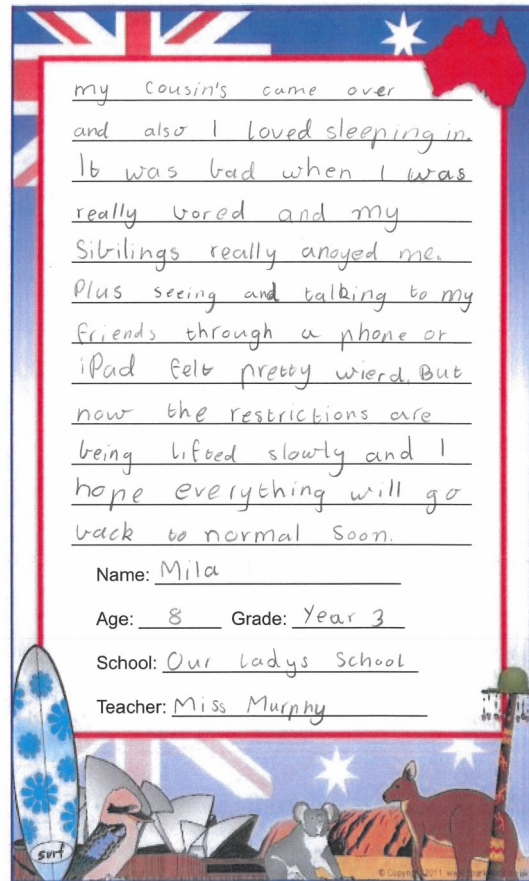 my cousin's came over
and also I loved sleeping in.
It was bad when I was
really bored and my
Sibilings really anoyed me.
Plus seeing and talking to my
friends through a phone or
iPad felt pretty wierd. But
now the restrictions are
being lifted slowly and I
hope everything will go
back to normal soon.
Name: Mila
Age: 8 Grade: Year 3
School: Our ladys School
Teacher: Miss Murphy
surf
© Copyright 2011, www.